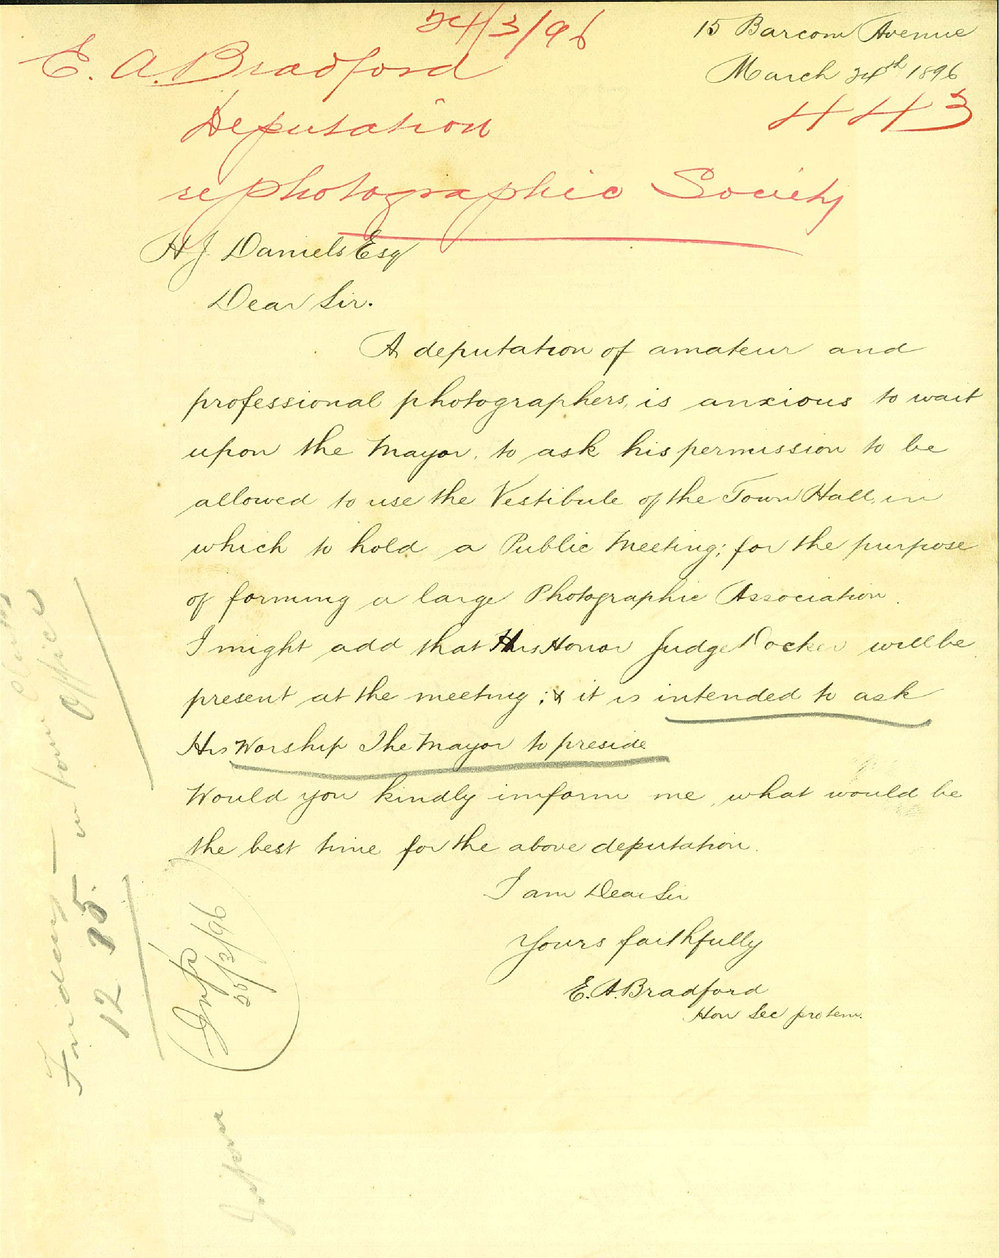 24/3/96
15 Barcom Avenue
March 24th 1896
E. A. Bradford
443
Deputation
re photographic Society
H J. Daniels Esq
Dear Sir.
A deputation of amateur and
professional photographers, is anxious to wait
upon the Mayor, to ask his permission to be
allowed to use the Vestibule of the Town Hall, in
which to hold a Public Meeting; for the purpose
of forming a large Photographic Association.
I might add that His Honor Judge Docker will be
present at the meeting; & it is intended to ask
His Worship The Mayor to preside
Would you kindly imform me, what would be
the best time for the above deputation.
I am Dear Sir
Yours faithfully
E. A. Bradford
Hon Sec protem.
Friday
12.15. in Town Clerks
Office
Inf
25/3/96
Inform